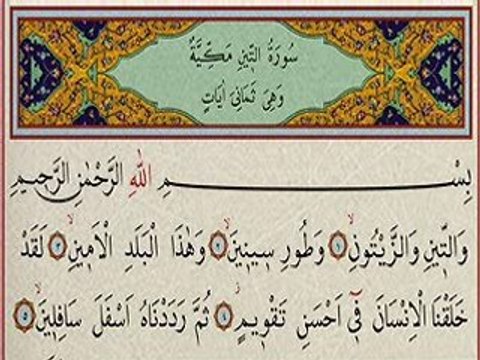 سُورَةُ التّ۪ينِ مَكِّيَّةٌ
وَهِيَ ثَمَانِيَ اٰيَاتٍ
بِسْــــــــــــــمِ اللّٰهِ الرَّحْمٰنِ الرَّحِيمِ
وَالتّ۪ينِ وَالزَّيْتُونِۙ ﴿١﴾ وَطُورِ س۪ين۪ينَۙ ﴿٢﴾ وَهٰذَا الْبَلَدِ الْاَم۪ينِۙ ﴿٣﴾ لَقَدْ
خَلَقْنَا الْاِنْسَانَ ف۪ٓي اَحْسَنِ تَقْو۪يمٍۘ ﴿٤﴾ ثُمَّ رَدَدْنَاهُ اَسْفَلَ سَافِل۪ينَۙ ﴿٥﴾